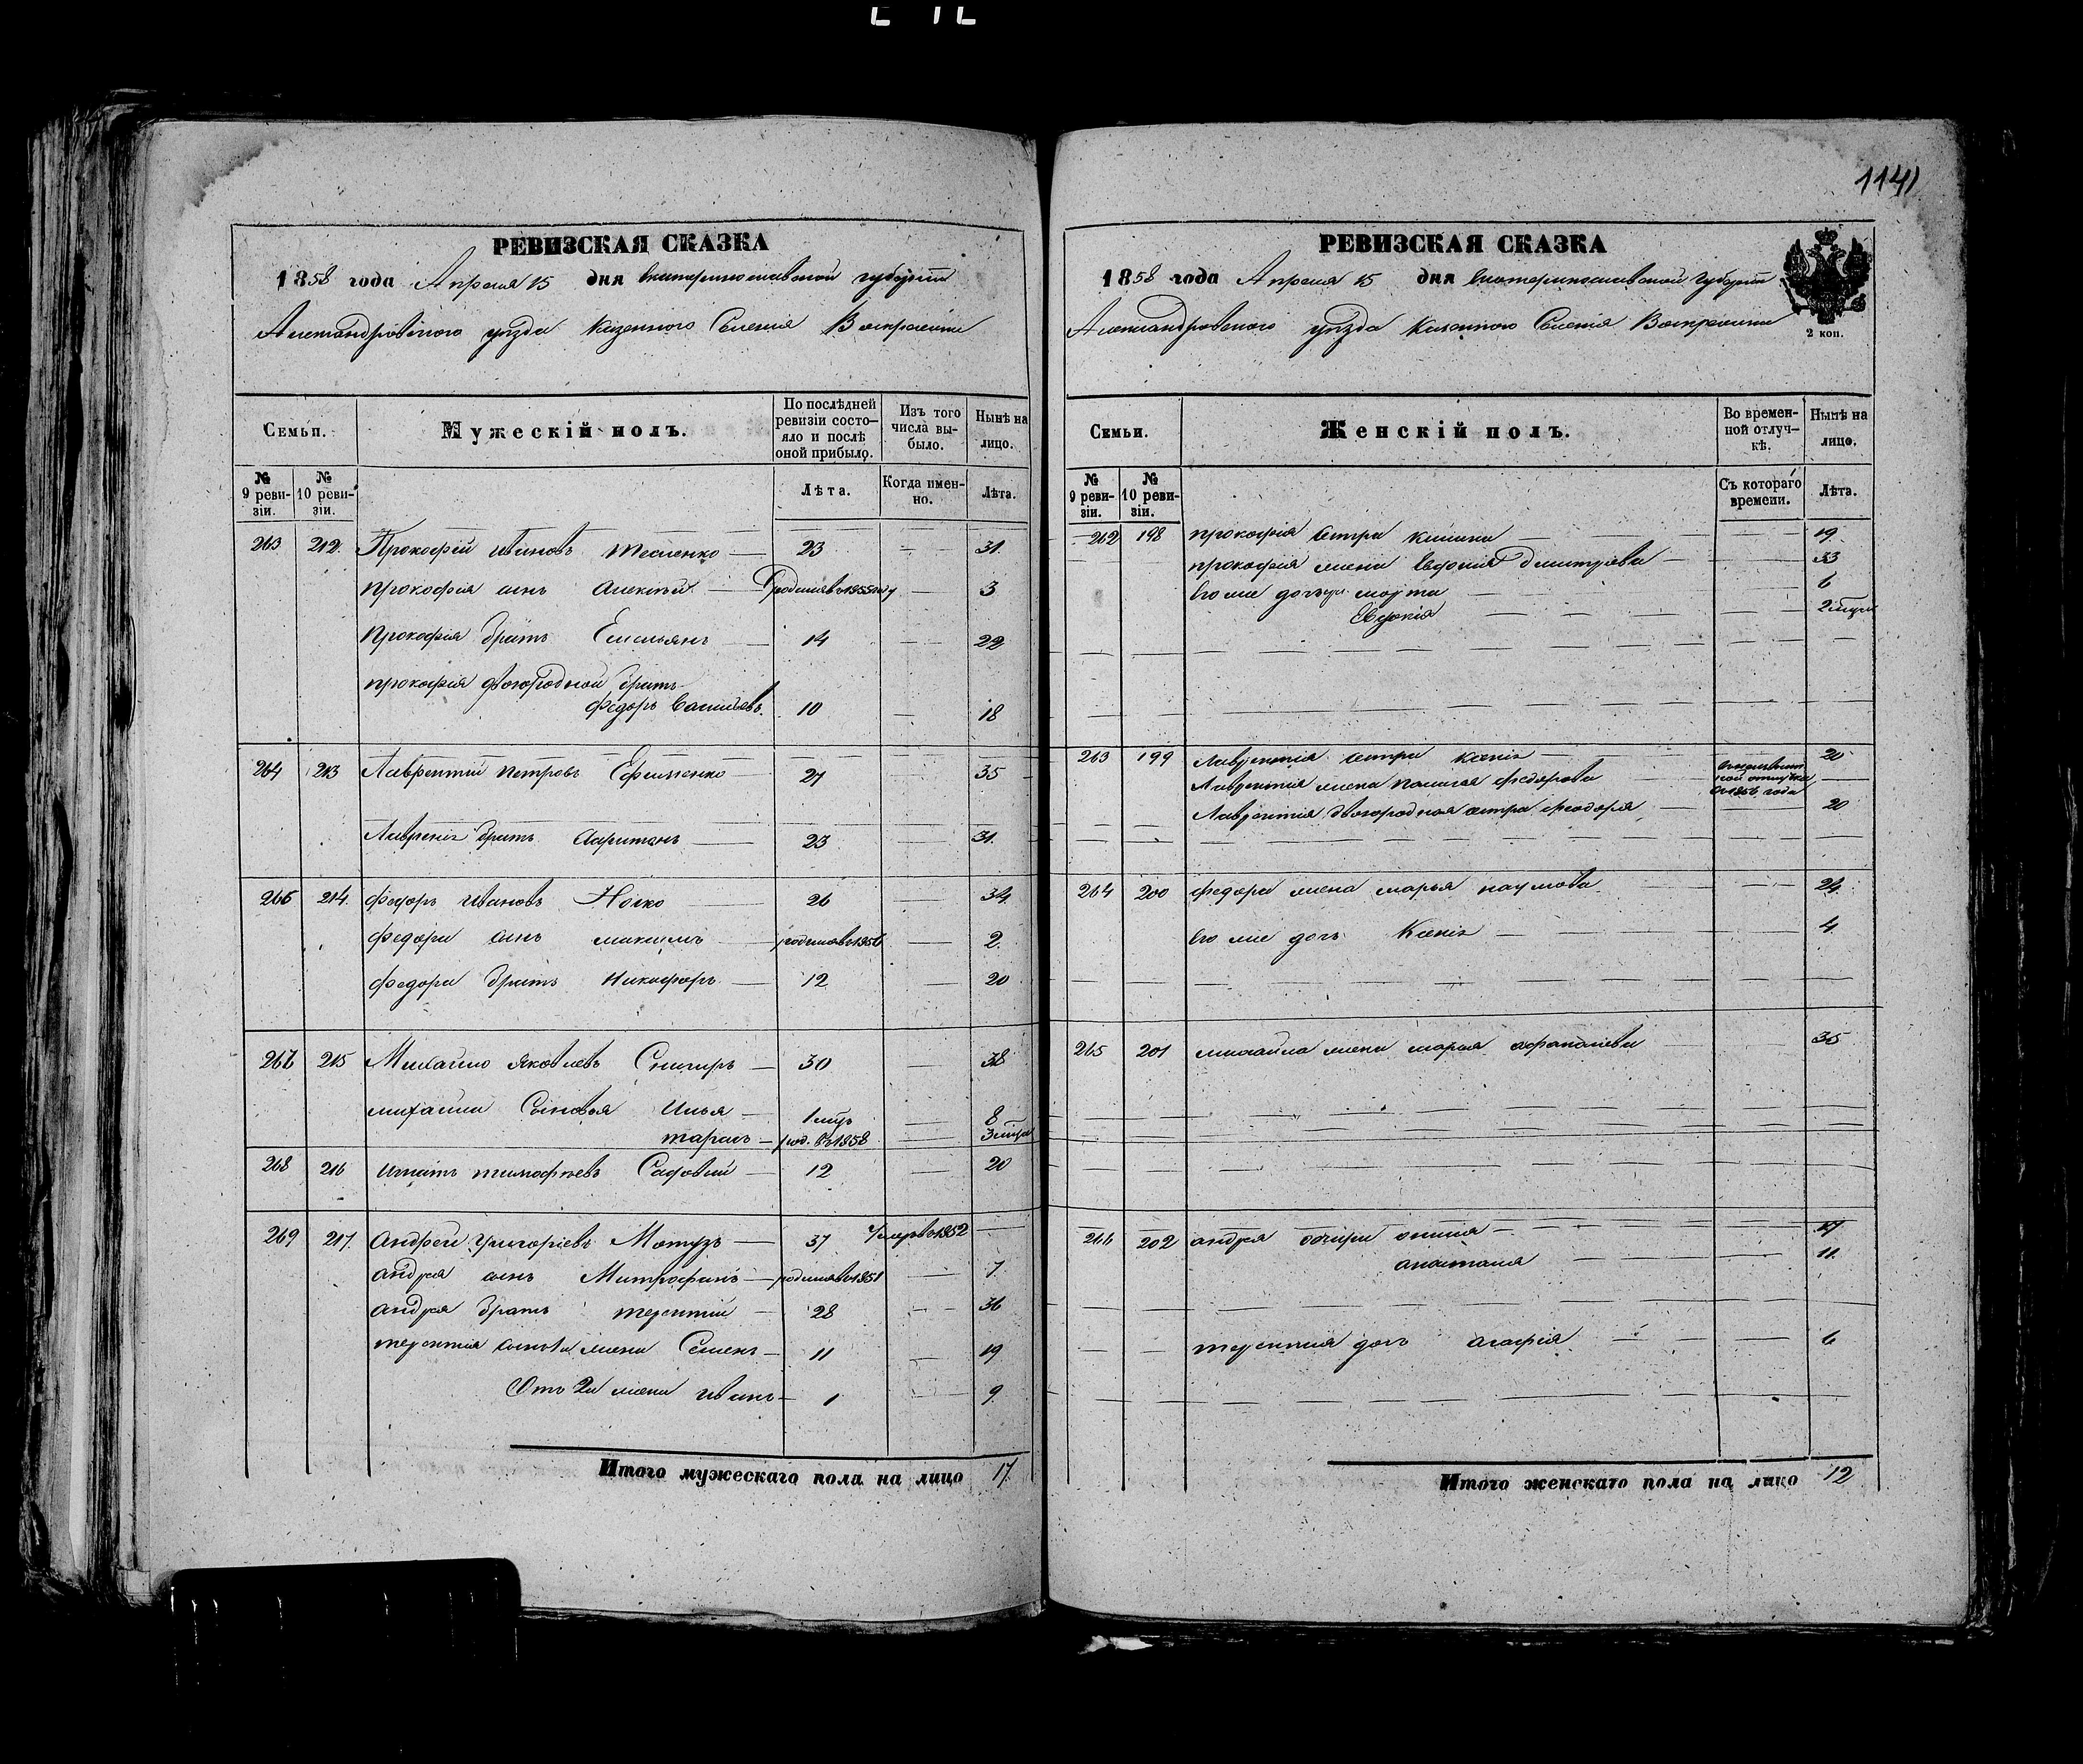 1141
РЕВИЗСКАЯ СКАЗКА
1858 года Апреля 15 дня Екатеринославской губерніи
Александровского уѣзда Казенного Селенія Воскресенки
Семьи.
Мужескій полъ.
По послѣдней ревизіи состо-
яло и послѣ
оной прибыло.
Изъ того
числа вы-
было.
Нынѣ на
лицо.
№
9 реви-
зіи.
№
10 реви-
зіи.
Лѣта.
Когда имен-
но.
Лѣта.
263 212. Прокофій Ивановъ Тесленко 23 31.
Прокофія сынъ Алексѣй родился въ 1855 году 3
Прокофія братъ Емельянъ 14 22
Прокофія двоюродной братъ
Федоръ Васильевъ. 10 18
264 213 Лаврентій Петровъ Ефименко 27 35
братъ Харитонъ 23 31.
265 214. Федоръ Ивановъ Носко 26 34.
Федора сынъ Максимъ родился въ 1856 2.
Федора братъ Никифоръ 12 20
267 215 Михайло Яковлевъ Снигиръ 30 38
Михайлы Сыновья Илья 1 мѣц 8
Тарасъ род. въ 1858 3 мѣца
268 216 Игнатъ Тимофѣевъ Садовий 12 20
269 217. Андрей Григоріевъ Мотузъ 37 Умеръ въ 1852
Андрея сынъ Митрофанъ родился въ 1851 7.
Андрея братъ Терентій 28 36
Терентія жены Семенъ 11 19
Отъ 2й жены Иванъ 1 9.
Итого мужескаго пола на лицо 17.
РЕВИЗСКАЯ СКАЗКА
1858 года Апреля 15 дня Екатеринославской Губерніи
Александровского уѣзда Казенного Селенія Воскресенки
2 коп.
Семьи.
Женскій полъ.
Во времен-
ной отлуч-
кѣ.
Нынѣ на
лицо.
№
9 реви-
зіи.
№
10 реви-
зіи.
Съ котораго
времени.
Лѣта.
262 198 Прокофія сестра 19.
Прокофія жена Дмитріева 33
Его же дочери Марфа 6
Евдокія 2
263 199 Лаврентія сестра Ксенія 20
Лаврентія жена Пелагея Федорова
съ 1856 года
Лаврентія двоюродная сестра Феодора 20
264 200 Федора жена Марья Наумова 24.
Его же дочь Ксенія 4.
265 201 Михайла жена Марья Афанасіева 35
266 202 Андрея дочери 17
Анастасія 11.
Терентія дочь Агафія 6
Итого женскаго пола на лицо 12